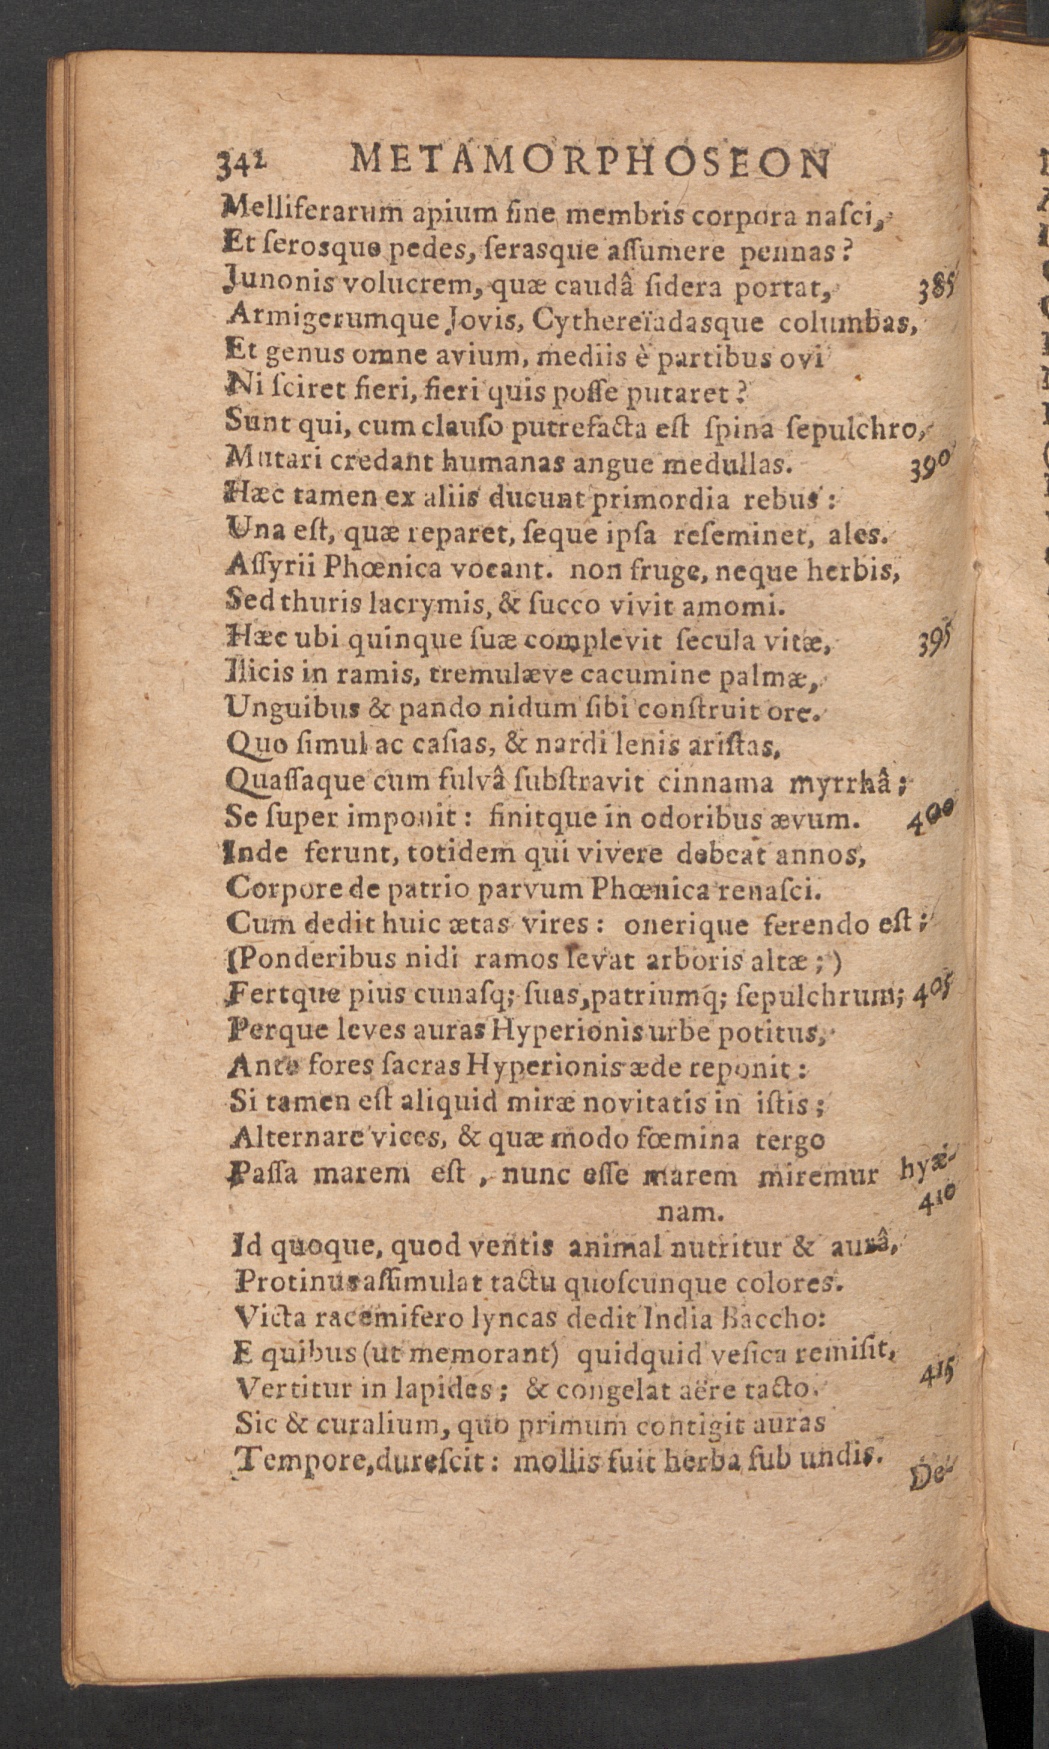 342 METAMORPHOSEON
Melliferarum apium ſine membris corpora naſci,
Et ſerosque pedes, ſerasque aſſumere pennas?
Junonis volucrem, quæ caudâ ſidera portat, 385
Armigerumque Jovis, Cythereïadasque columbas,
Et genus omne avium, mediis è partibus ovi
Ni ſciret fieri, fieri quis poſſe putaret?
Sunt qui, cum clauſo putrefacta eſt ſpina ſepulchro,
Mutari credant humanas angue medullas. 390
Hæc tamen ex aliis ducunt primordia rebus:
Una eſt, quæ reparet, ſeque ipſa reſeminet, ales.
Aſſyrii Phœnica vocant. non fruge, neque herbis,
Sed thuris lacrymis, & ſucco vivit amomi.
Hæc ubi quinque ſuæ complevit ſecula vitæ, 395
Ilicis in ramis, tremulæve cacumine palmæ,
Unguibus & pando nidum ſibi conſtruit ore.
Quo ſimul ac caſias, & nardi lenis ariſtas,
Quaſſaque cum fulvâ ſubſtravit cinnama myrrhâ;
Se ſuper imponit: finitque in odoribus ævum. 400
Inde ferunt, totidem qui vivere debeat annos,
Corpore de patrio parvum Phœnica renaſci.
Cum dedit huic ætas vires: onerique ferendo eſt;
(Ponderibus nidi ramos levat arboris altæ;)
Fertque pius cunasq; ſuas, patriumq; ſepulchrum; 405
Perque leves auras Hyperionis urbe potitus,
Ante fores ſacras Hyperionis æde reponit:
Si tamen eſt aliquid miræ novitatis in iſtis;
Alternare vices, & quæ modo fœmina tergo
Paſſa marem eſt, nunc eſſe marem miremur hyæ-
nam. 410
Id quoque, quod ventis animal nutritur & aurâ,
Protinus aſſimulat tactu quoſcunque colores.
Victa racemifero lyncas dedit India Baccho:
E quibus (ut memorant) quidquid veſica remiſit,
Vertitur in lapides; & congelat aëre tacto. 415
Sic & curalium, quo primum contigit auras
Tempore, dureſcit: mollis fuit herba ſub undis.
De-